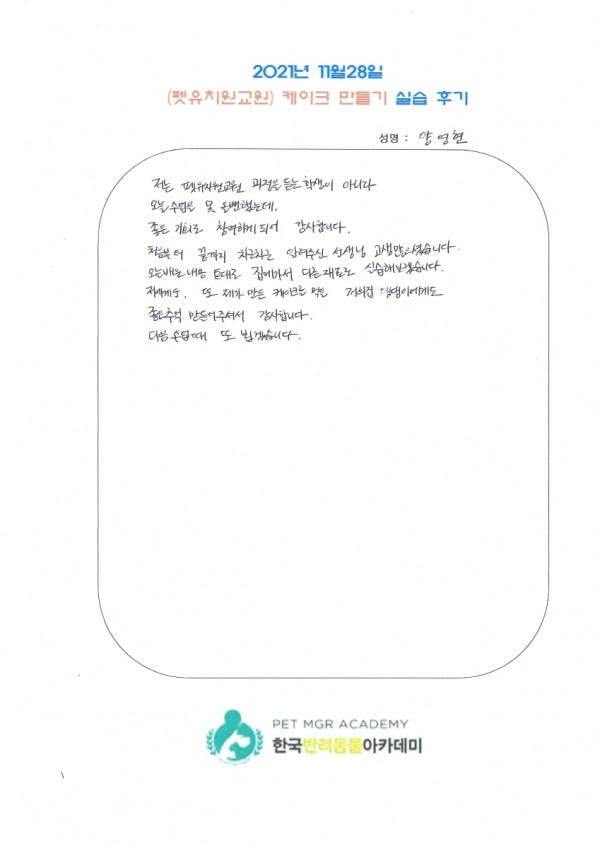 2021년 11월28일
(펫유치원교원) 케이크 만들기 실습 후기
성명 : 양영현
저는 펫유치원교원 과정을 듣는 학생이 아니라
오늘 수업을 못 들을뻔했는데,
좋은 기회로 참여하게 되어 감사합니다.
처음부터 끝까지 차근차근 알려주신 선생님 고생많으셨습니다.
오늘배운 내용 토대로 집에가서 다른재료로 실습해보겠습니다.
저에게도, 또 제가 만든 케이크를 먹을 저희집 댕댕이에게도
좋은추억 만들어주셔서 감사합니다.
다음 수업때 또 뵙겠습니다.
PET MGR ACADEMY
한국반려동물아카데미